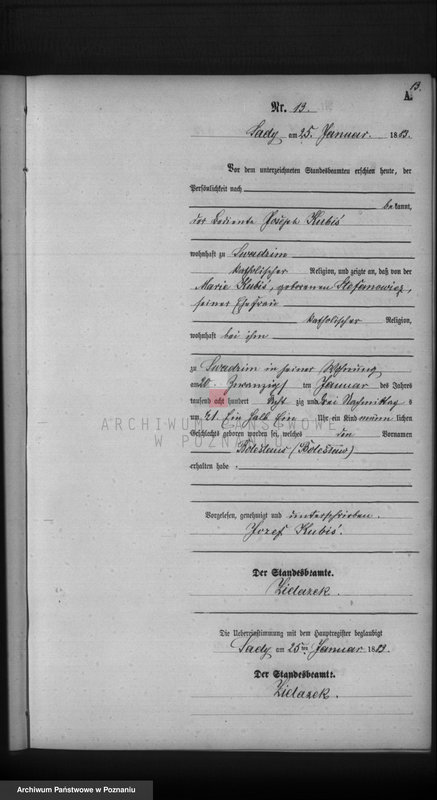 13.
A.
Nr. 13.
Sady am 25. Januar. 1883.
Vor dem unterzeichneten Standesbeamten erschien heute, der
Persönlichkeit nach
bekannt,
der Bediente Joseph Kubis
wohnhaft zu Swadzim
katholischer Religion, und zeigte an, daß von der
Marie Kubis, geborenen Stefanowicz,
seiner Ehefrau
katholischer Religion,
wohnhaft bei ihm
zu Swadzim in seiner Wohnung
am 20. Zwanzigs ten Januar des Jahres
tausend acht hundert Acht zig und Drei Nachmittag s
um Ein halb Ein Uhr ein Kind männ lichen
Geschlechts geboren worden sei, welches den Vornamen
Boleslaus (Bolesław)
erhalten habe.
ARCHIWUM PAŃSTWOWE
W POZNANIU
Vorgelesen, genehmigt und unterschrieben.
Jozef Kubiś.
Der Standesbeamte.
Zielazek.
Die Uebereinstimmung mit dem Hauptregister beglaubigt
Sady am 25ten Januar 1883.
Der Standesbeamte.
Zielazek.
Archiwum Państwowe w Poznaniu